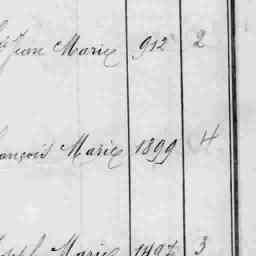 Jean Marie 912 2
ançois Marie 1899 4
seph Marie 1897 3